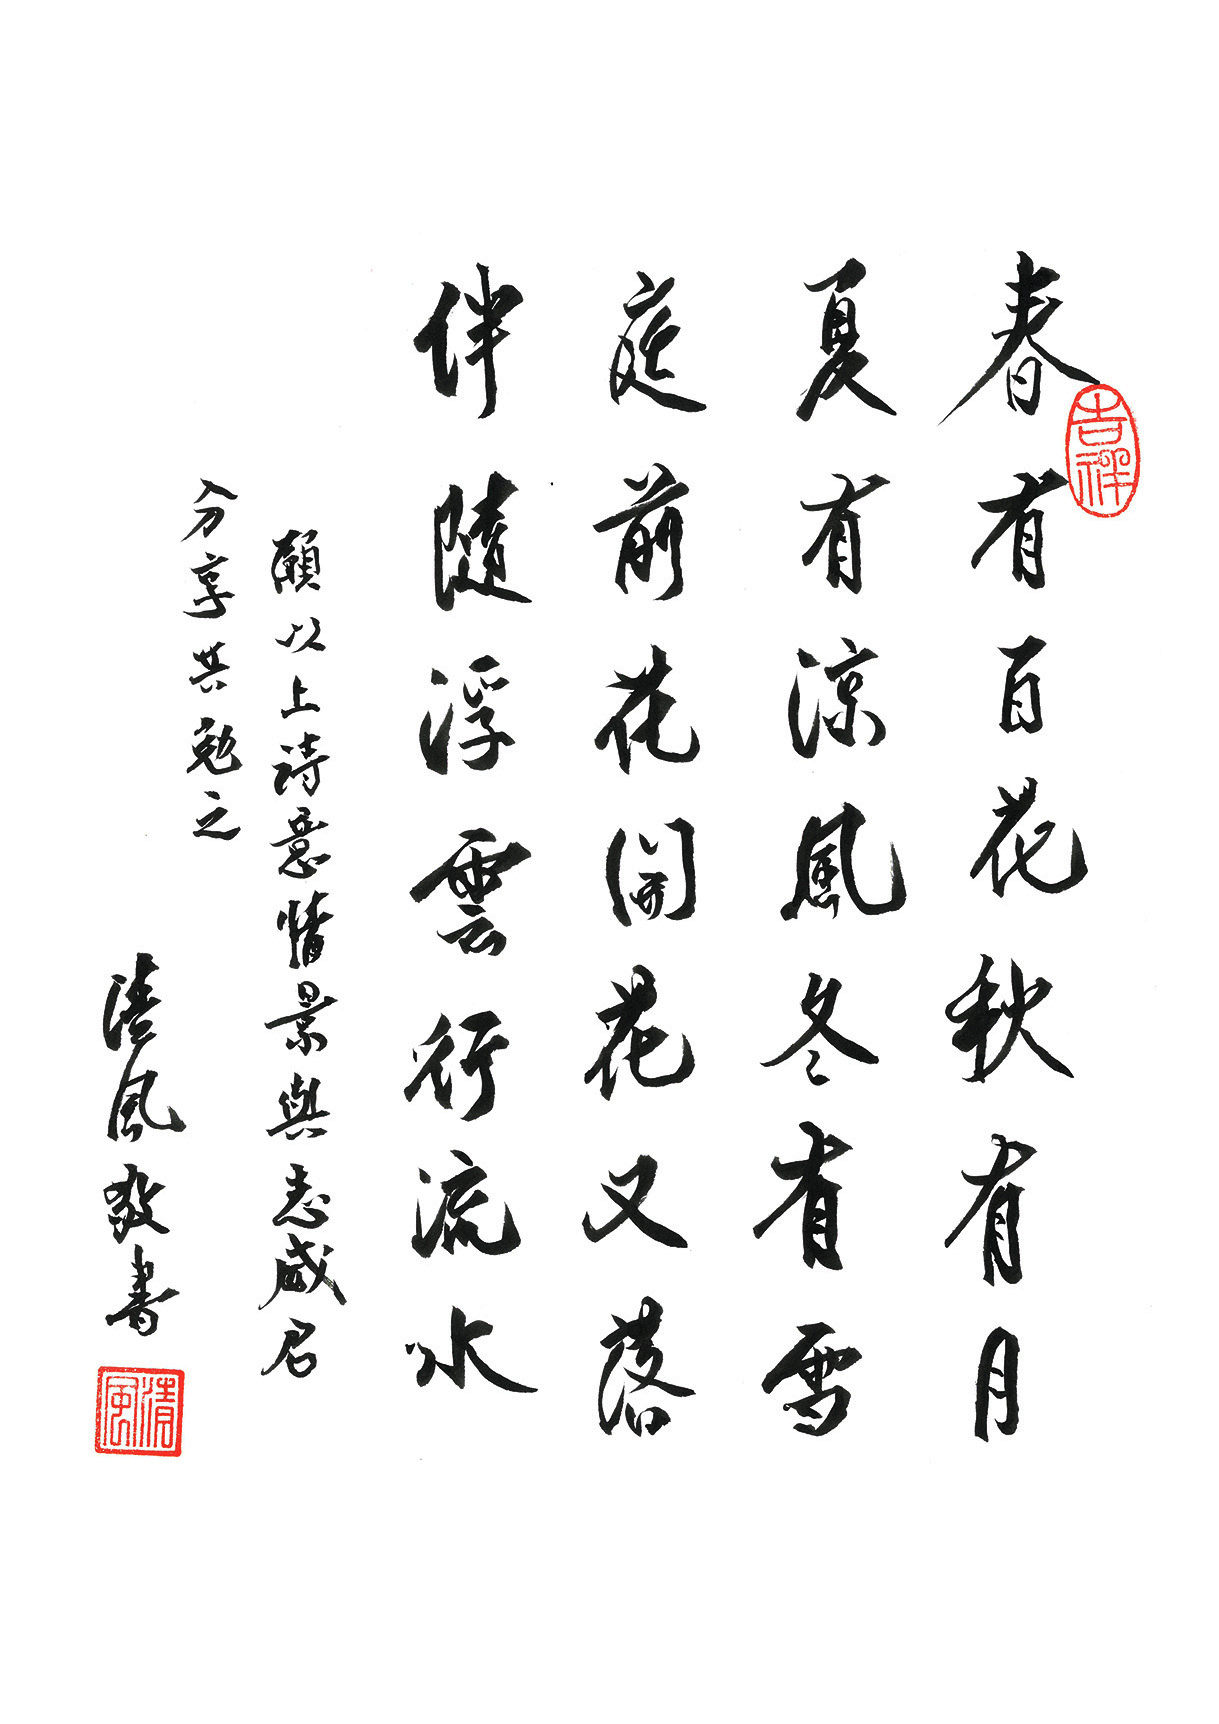 春有百花秋有月
吉祥
夏有涼風冬有雪
庭前花開花又落
伴隨浮雲行流水
願以上詩意情景與志威君
分享共勉之
清風敬書
清風